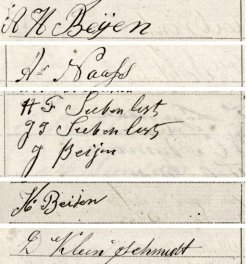 R H Beijen
Ar Naafs
H F Siebenlist
J J Siebenlist
J Beijen
H Beiten
L Kleinschmidt